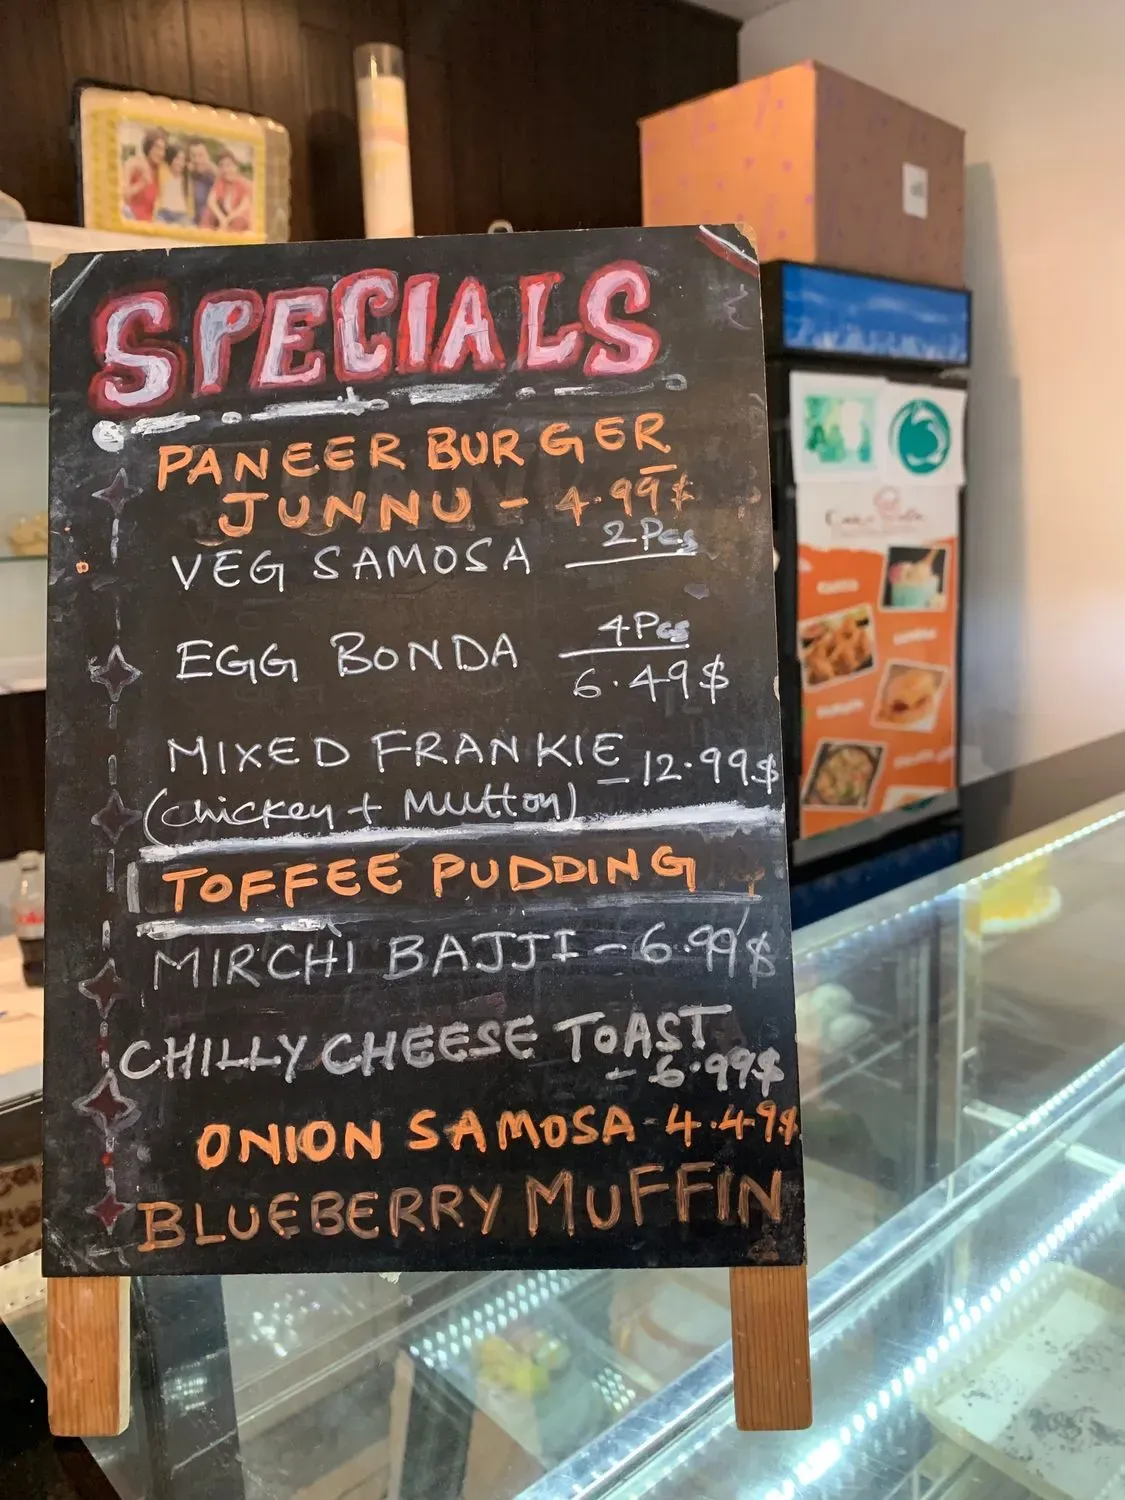 SPECIALS
PANEER BURGER
JUNNU - 4.99$
VEG SAMOSA 2Pcs
EGG BONDA 4Pcs
6.49$
MIXED FRANKIE - 12.99$
(Chickey + Mutton)
TOFFEE PUDDING
MIRCHI BAJJI - 6.99$
CHILLY CHEESE TOAST
- 6.99$
ONION SAMOSA - 4.49$
BLUEBERRY MUFFIN